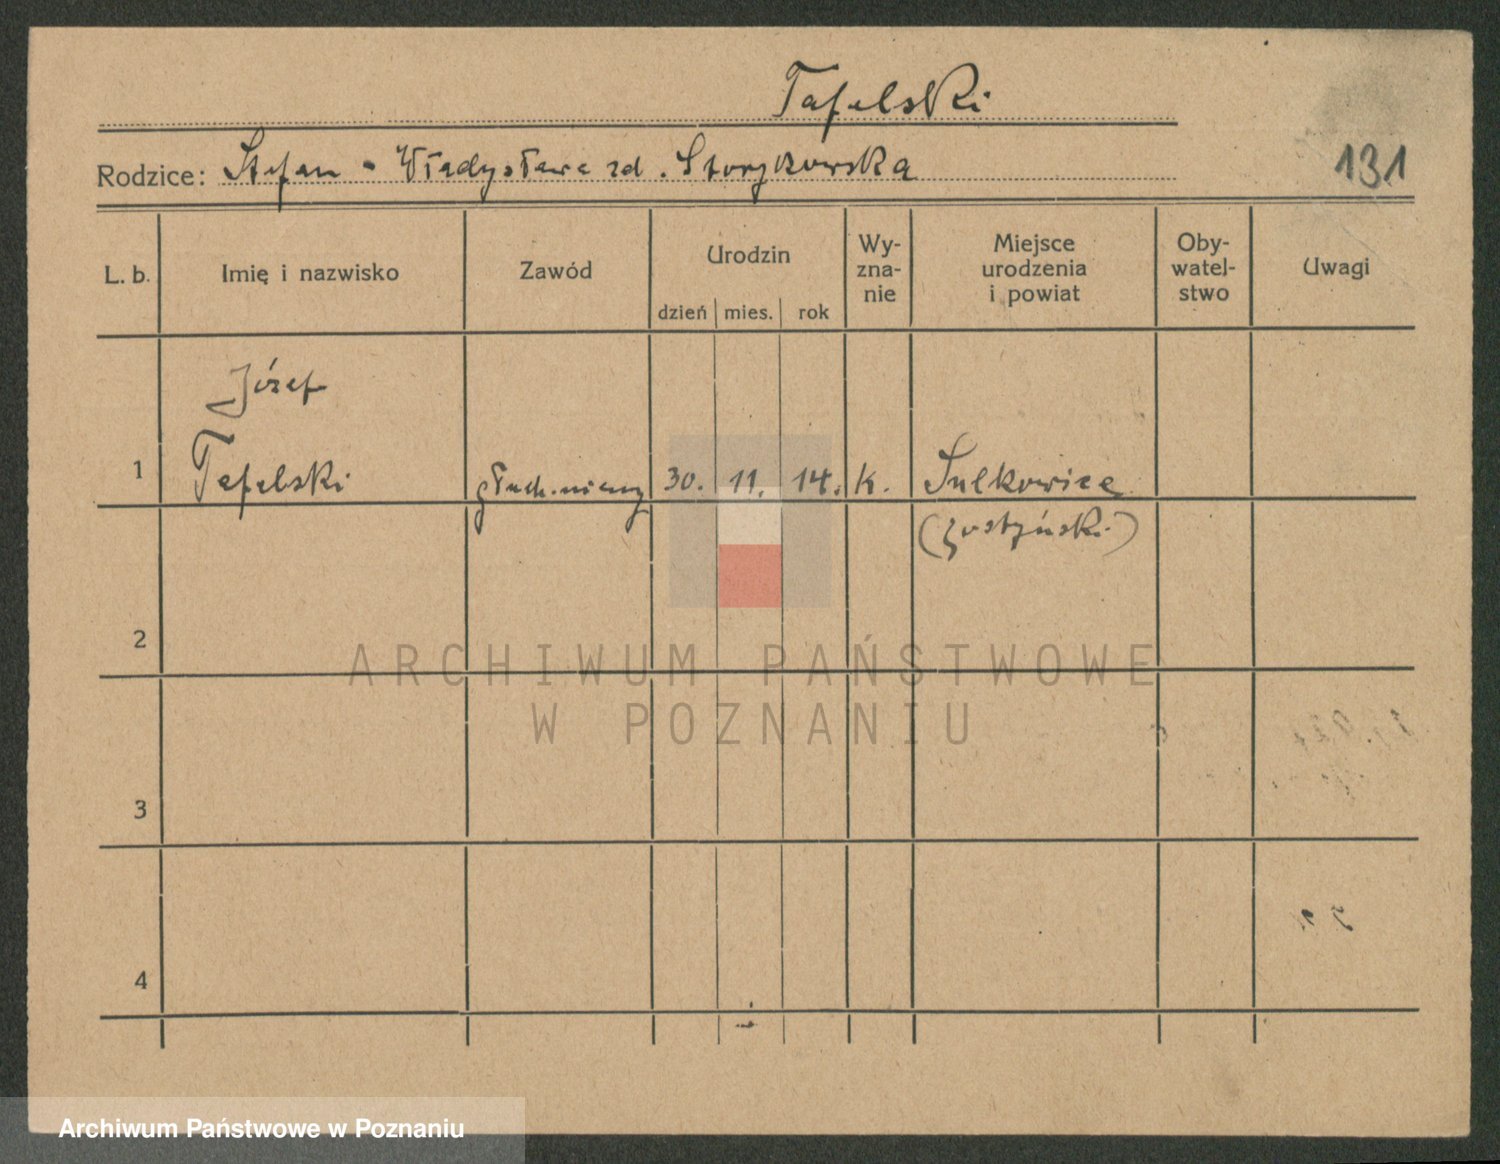 Tafelski
Rodzice: Stefan - Władysława zd. Storykowska
131
L. b. Imię i nazwisko Zawód Urodzin dzień mies. rok Wy-zna-nie Miejsce urodzenia i powiat Oby-watel-stwo Uwagi
Józef
1 Tafelski głuch.niemy 30. 11. 14. K. Sulkowice
(gostyński)
2
ARCHIWUM PAŃSTWOWE
W POZNANIU
3
4
Archiwum Państwowe w Poznaniu